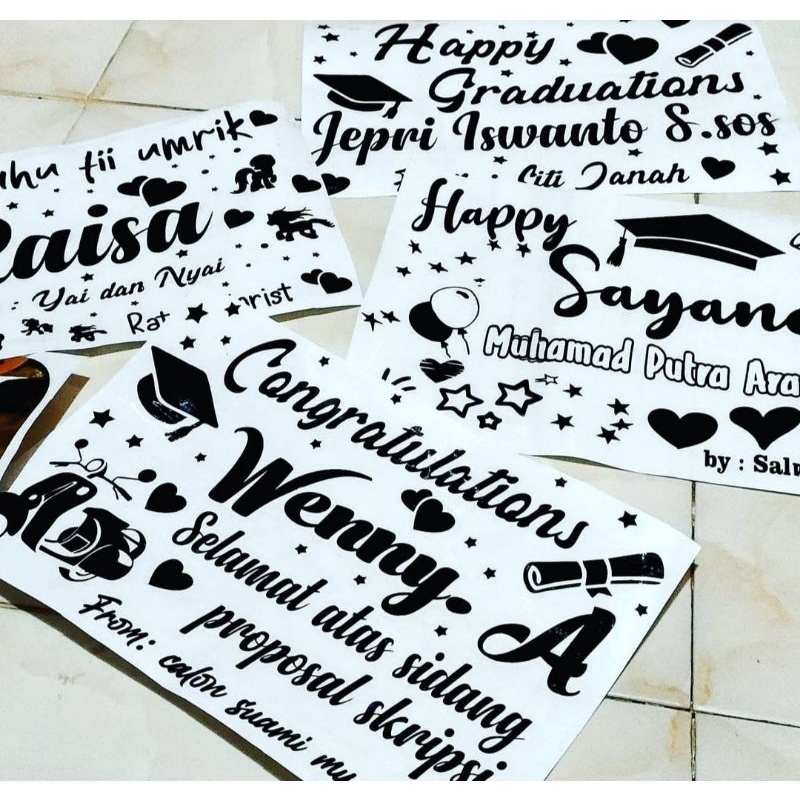 Happy
Graduations
Jepri Iswanto S.sos
Siti Janah
tii umrik
Raisa
: Yai dan Nyai
Happy
Sayang
Muhamad Putra Ara
by :
Congratulations
Wenny. A
Selamat atas sidang
proposal skripsi
From: calon suami my